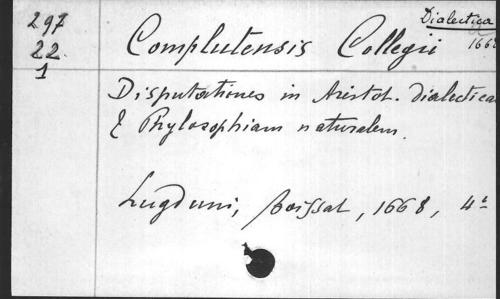 297
22
1
Dialectica
1668
Complutensis Collegii
Disputationes in Aristot. dialecticam
& Phylosophiam naturalem.
Lugduni, Boissat, 1668, 4º